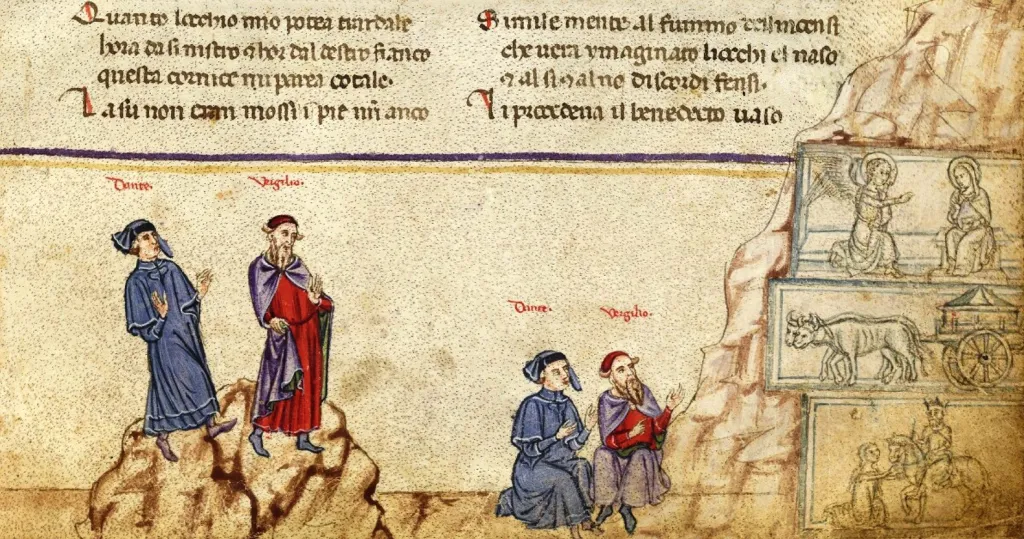 Quanto locchio mio potea tirardale
hora da sinistro ⁊ hor dal destro fianco
questa cornice mi parea cotale.
La su non eran mossi i pie nr̄i anco
Simile mente al fummo delincensi
che uera ymaginato liocchi el naso
⁊ al si ⁊ al no discordi fensi.
Li precedeua il benedecto uaso
Dante.
Vergilio.
Dante.
Vergilio.